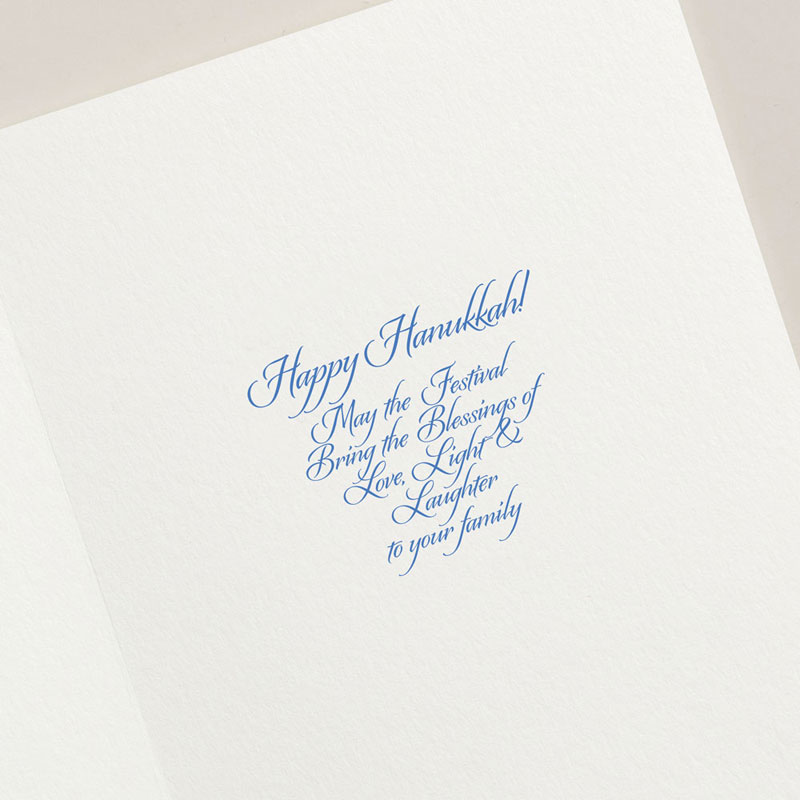 Happy Hanukkah!
May the Festival
Bring the Blessings of
Love, Light &
Laughter
to your family